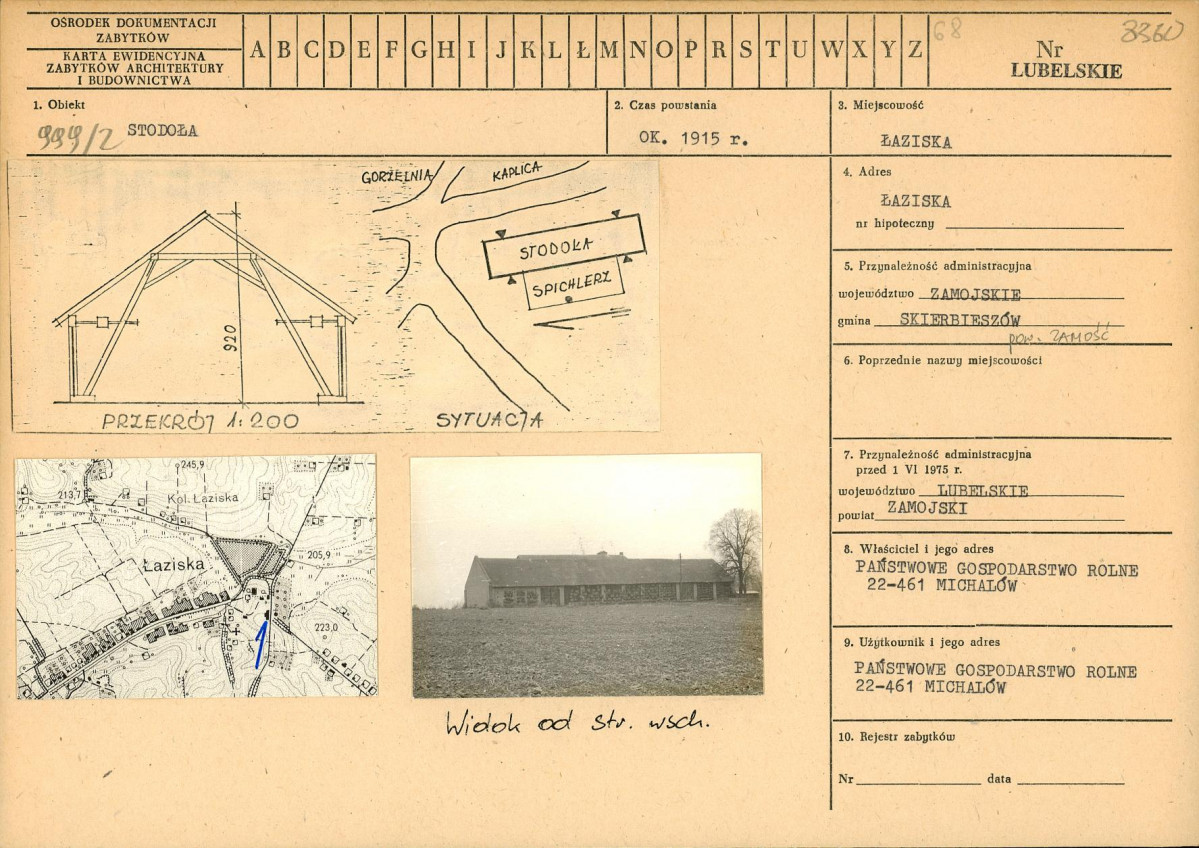 OŚRODEK DOKUMENTACJI
ZABYTKÓW
KARTA EWIDENCYJNA
ZABYTKÓW ARCHITEKTURY
I BUDOWNICTWA
A B C D E F G H I J K L Ł M N O P R S T U W X Y Z
68
3360
Nr
LUBELSKIE
1. Obiekt
999/2 STODOŁA
2. Czas powstania
OK. 1915 r.
3. Miejscowość
ŁAZISKA
4. Adres
ŁAZISKA
nr hipoteczny
5. Przynależność administracyjna
województwo ZAMOJSKIE
gmina SKIERBIESZÓW
pow. ZAMOŚĆ
6. Poprzednie nazwy miejscowości
7. Przynależność administracyjna
przed 1 VI 1975 r.
województwo LUBELSKIE
powiat ZAMOJSKI
8. Właściciel i jego adres
PAŃSTWOWE GOSPODARSTWO ROLNE
22-461 MICHALÓW
9. Użytkownik i jego adres
PAŃSTWOWE GOSPODARSTWO ROLNE
22-461 MICHALÓW
10. Rejestr zabytków
Nr data
GORZELNIA
KAPLICA
STODOŁA
SPICHLERZ
920
PRZEKRÓJ 1:200
SYTUACJA
245,9
213,7
Kol. Łaziska
Łaziska
205,9
223,0
Widok od str. wsch.